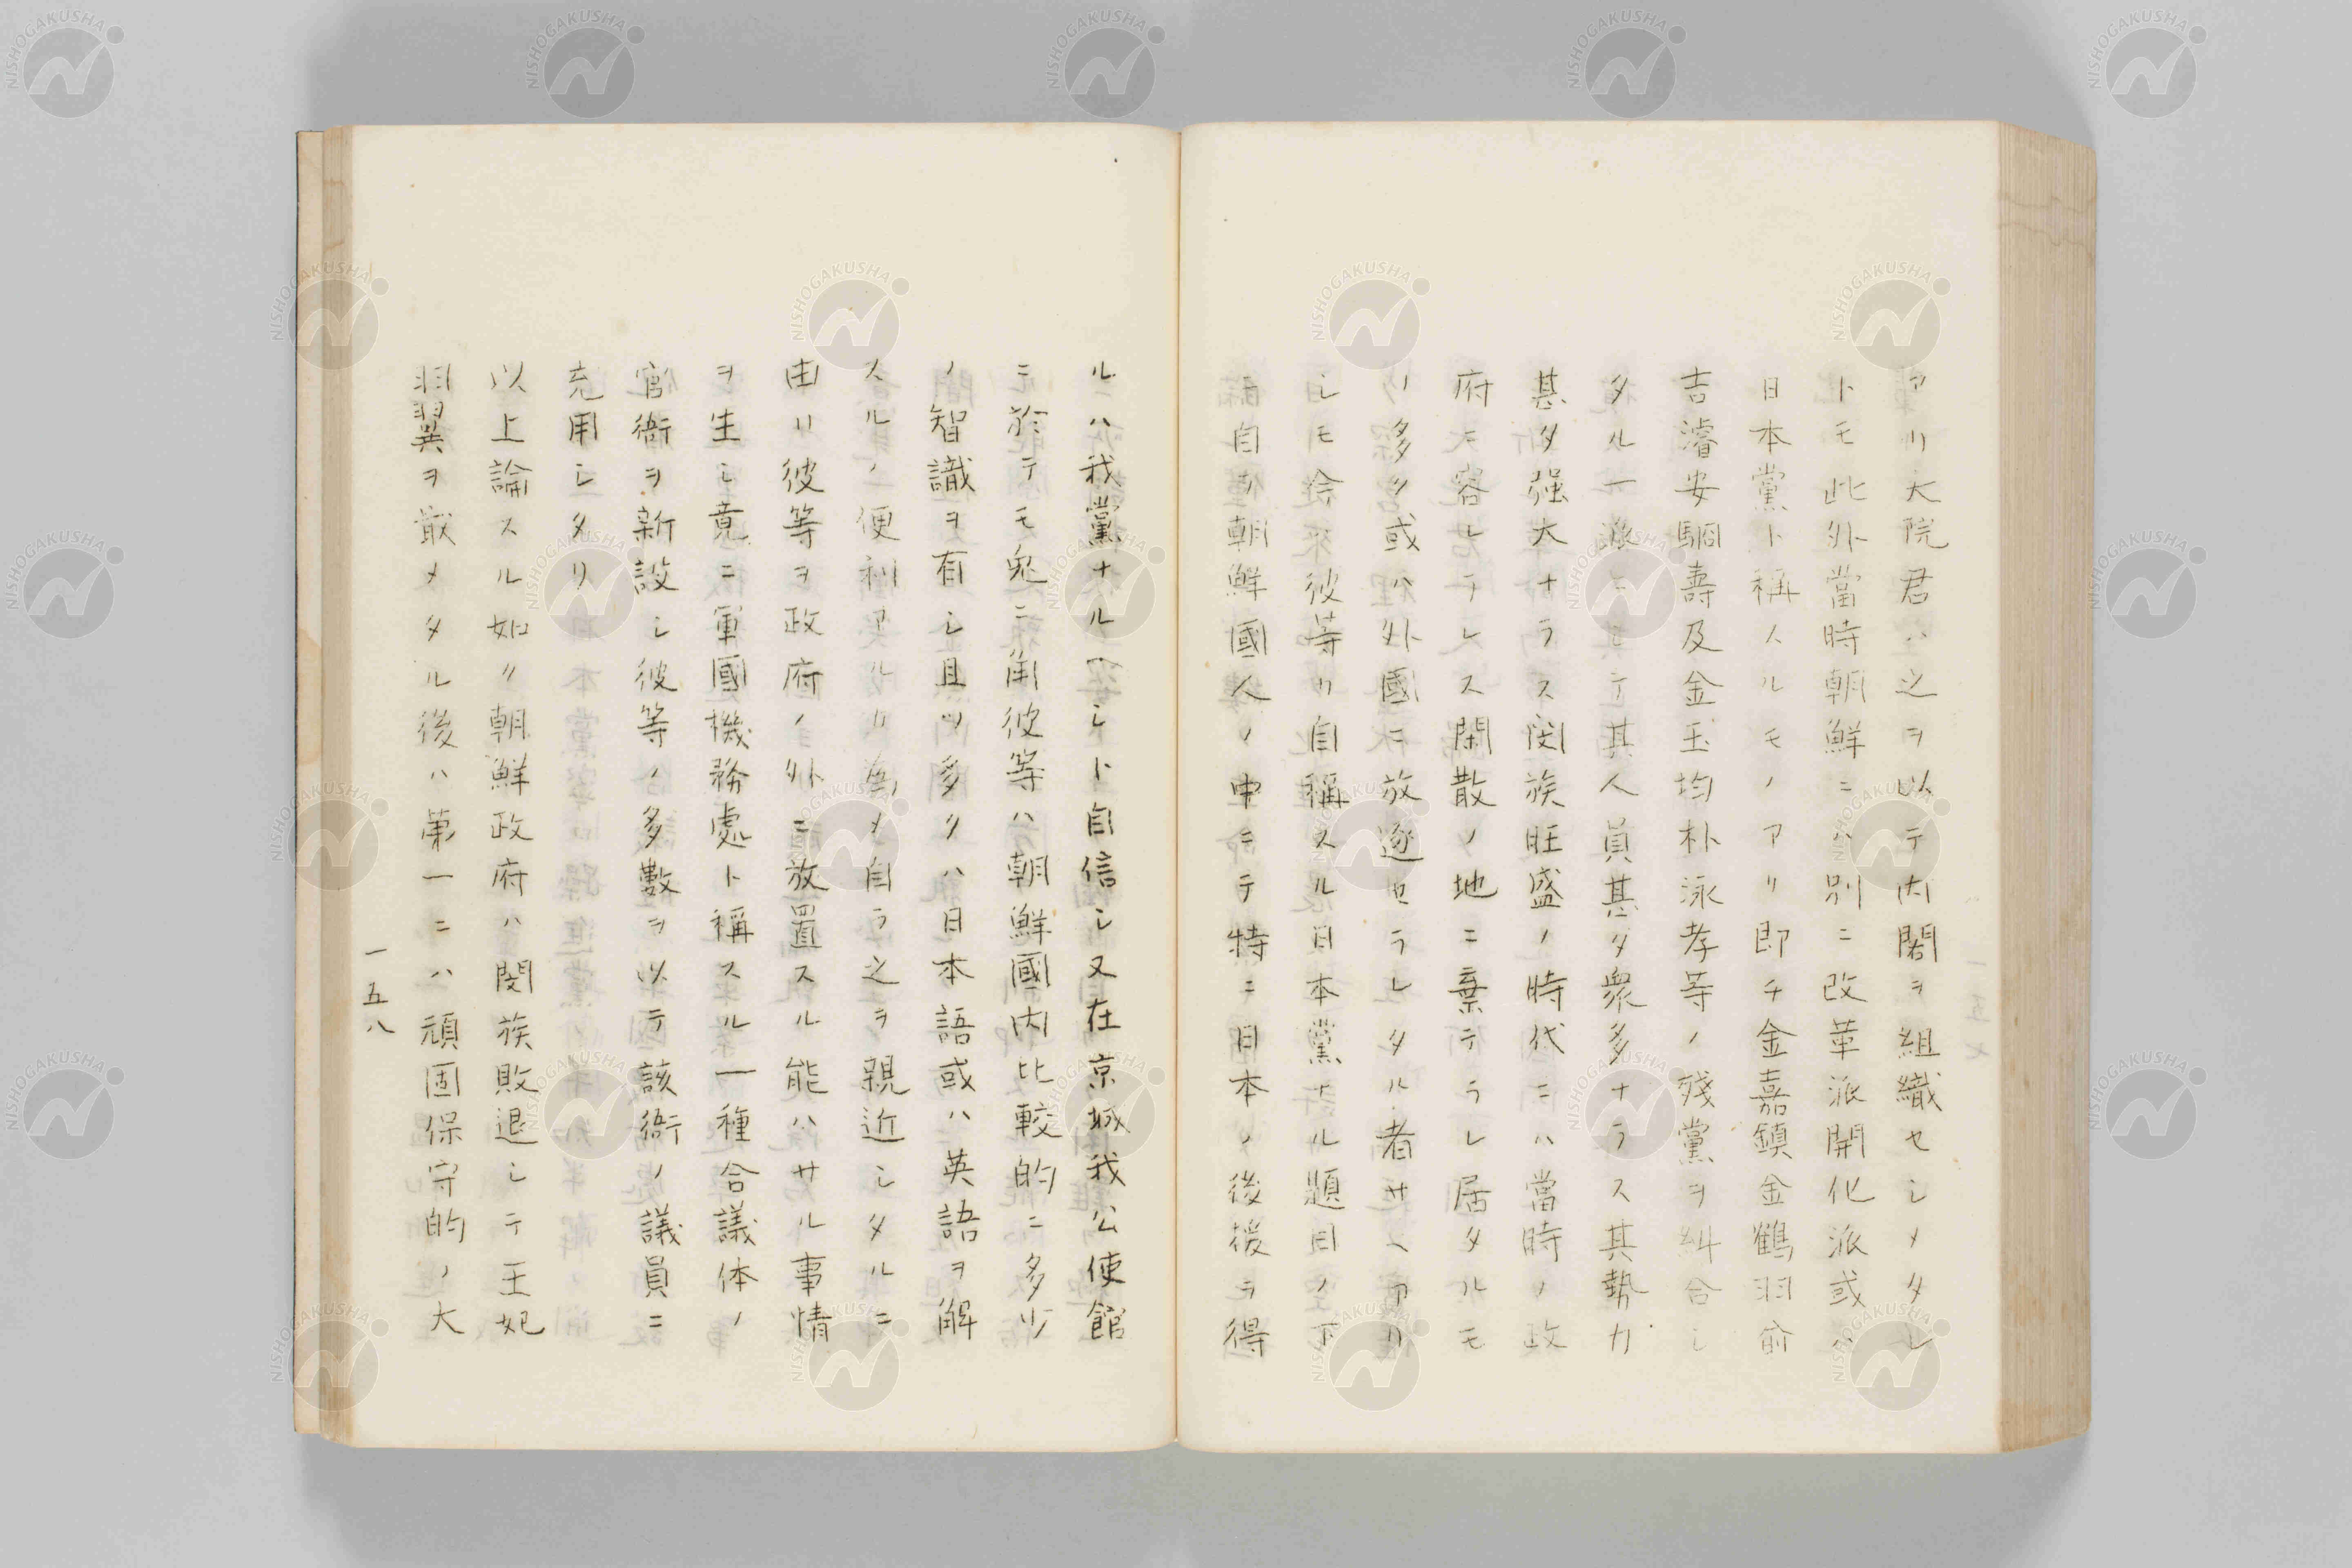 アリ大院君ハ之ヲ以テ内閣ヲ組織セシメタレ
トモ此外當時朝鮮ニハ別ニ改革派開化派或ハ
日本黨ト稱スルモノアリ即チ金嘉鎮金鶴羽俞
吉濬安駉壽及金玉均朴泳孝等ノ殘黨ヲ糾合シ
タル一派ニシテ其人員甚タ衆多ナラス其勢力
甚タ强大ナラス閔族旺盛ノ時代ニハ當時ノ政
府ニ容レラレス閑散ノ地ニ棄テラレ居タルモ
ノ多ク或ハ外國ニ放逐セラレタル者サヘアリ
シモ従来彼等カ自稱スル日本黨ナル題目ノ下
ニ自カラ朝鮮國人ノ中ニテ特ニ日本ノ後援ヲ得
ルハ我黨ナルヘシト自信シ又在京城我公使館
ニ於テモ兎ニ角彼等ハ朝鮮國内比較的ニ多少
ノ智識ヲ有シ且ツ多クハ日本語或ハ英語ヲ解
スルノ便利アルカ為メ自ラ之ヲ親近シタルニ
由リ彼等ヲ政府ノ外ニ放置スル能ハサル事情
ヲ生シ竟ニ軍國機務處ト稱スル一種合議体ノ
官衙ヲ新設シ彼等ノ多數ヲ以テ該衙ノ議員ニ
充用シタリ
以上論スル如ク朝鮮政府ハ閔族敗退シテ王妃
羽翼ヲ戢メタル後ハ第一ニハ頑固保守的ノ大
一五八
NISHOGAKUSHA